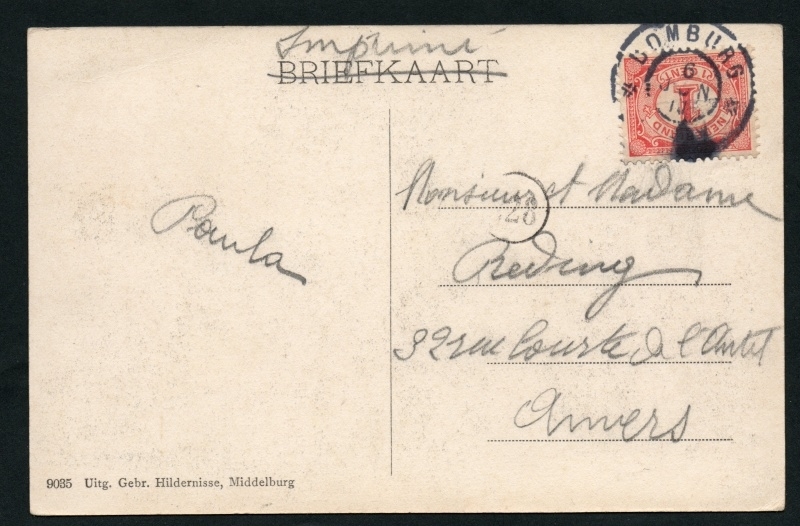 Imprimé
BRIEFKAART
DOMBURG
6 JUN
1
NEDERLAND
Monsieur et Madame
26
Reding
Paula
32 rue Courte de l'Autel
Anvers
9035 Uitg. Gebr. Hildernisse, Middelburg